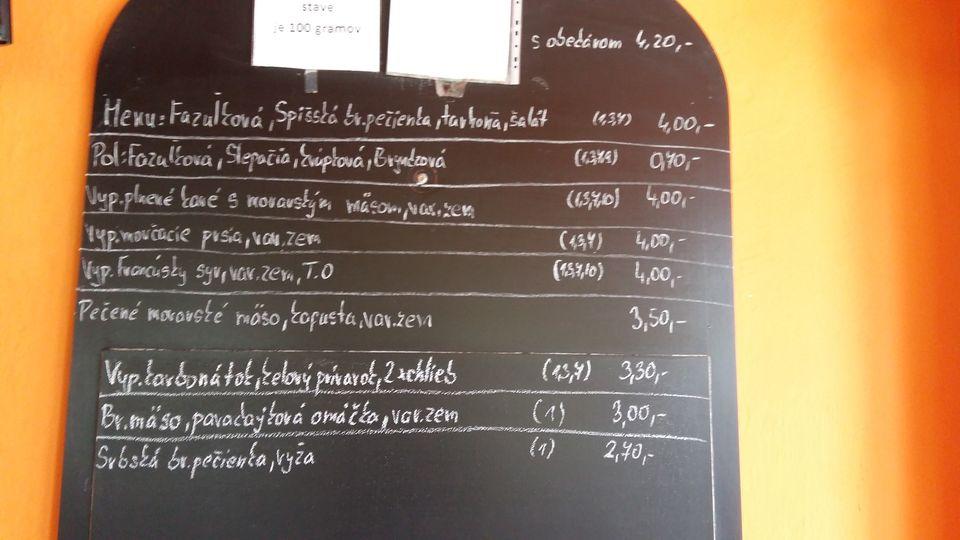 stave
je 100 gramov
s obedárom 4,20,-
Menu: Fazuľková, Spišská br.pečienka, tarhoňa, šalát (1,3,7) 4,00,-
Pol: Fazuľková, Slepačia, Bryndzová 0,70,-
Vyp. plnené s moravským mäsom, var.zem (1,3,7,10) 4,00,-
Vyp. morčacie prsia, var.zem (1,3,7) 4,00,-
Vyp. Francúsky syr, var.zem, T.O (1,3,7,10) 4,00,-
Pečené moravské mäso, kapusta, var.zem 3,50,-
Vyp. karbonátok, kelový prívarok, 2xchlieb (1,3,7) 3,30,-
Br. mäso, paradajková omáčka, var.zem (1) 3,00,-
Srbská br.pečienka, ryža (1) 2,70,-